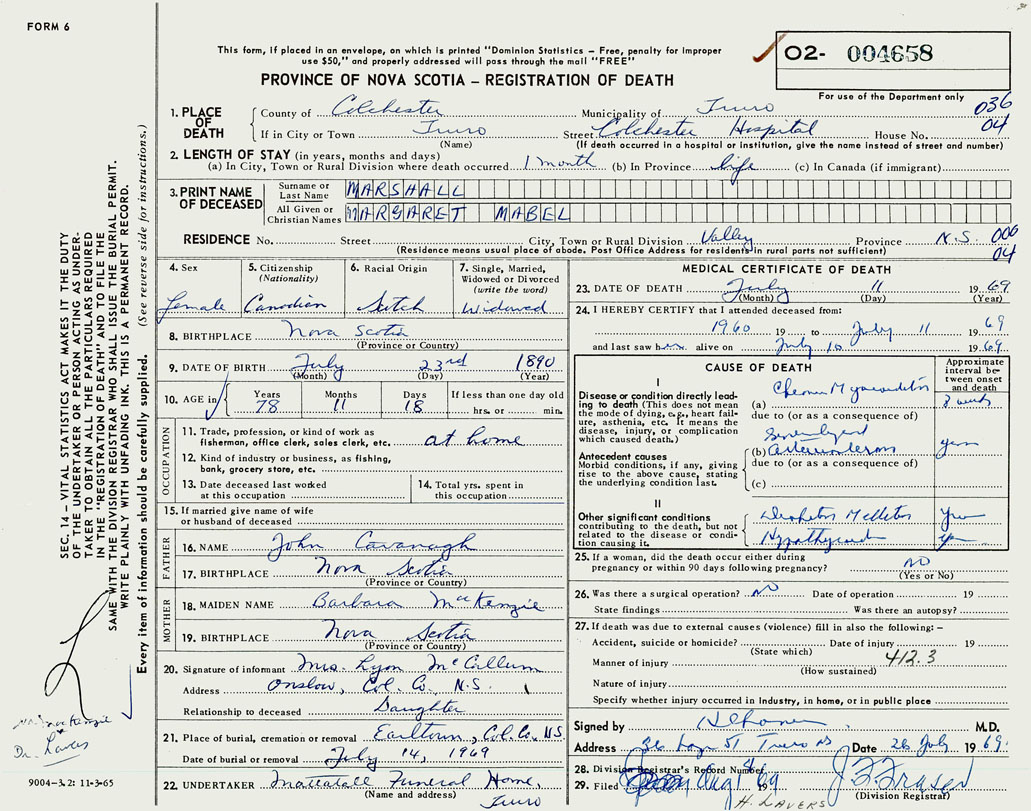 FORM 6
This form, if placed in an envelope, on which is printed "Dominion Statistics – Free, penalty for improper
use $50," and properly addressed will pass through the mail "FREE"
PROVINCE OF NOVA SCOTIA – REGISTRATION OF DEATH
O2- 004658
For use of the Department only
036
04
1. PLACE OF DEATH
County of Colchester Municipality of Truro
If in City or Town Truro Street Colchester Hospital House No.
(Name) (If death occurred in a hospital or institution, give the name instead of street and number)
2. LENGTH OF STAY (in years, months and days)
(a) In City, Town or Rural Division where death occurred 1 month (b) In Province Life (c) In Canada (if immigrant)
3. PRINT NAME OF DECEASED
Surname or Last Name MARSHALL
All Given or Christian Names MARGARET MABEL
RESIDENCE No. Street City, Town or Rural Division Valley Province N.S. 006
(Residence means usual place of abode. Post Office Address for residents in rural parts not sufficient) 04
4. Sex Female
5. Citizenship (Nationality) Canadian
6. Racial Origin Scotch
7. Single, Married, Widowed or Divorced (write the word) Widowed
8. BIRTHPLACE Nova Scotia
(Province or Country)
9. DATE OF BIRTH July 23rd 1890
(Month) (Day) (Year)
10. AGE in Years 78 Months 11 Days 18 If less than one day old hrs. or min.
OCCUPATION
11. Trade, profession, or kind of work as fisherman, office clerk, sales clerk, etc. at home
12. Kind of industry or business, as fishing, bank, grocery store, etc.
13. Date deceased last worked at this occupation
14. Total yrs. spent in this occupation
15. If married give name of wife or husband of deceased
FATHER
16. NAME John Cavanagh
17. BIRTHPLACE Nova Scotia
(Province or Country)
MOTHER
18. MAIDEN NAME Barbara MacKenzie
19. BIRTHPLACE Nova Scotia
(Province or Country)
20. Signature of informant Mrs. Lyon McCallum
Address Onslow, Col. Co., N.S.
Relationship to deceased Daughter
21. Place of burial, cremation or removal Earltown, Col. Co. N.S.
Date of burial or removal July 14, 1969
22. UNDERTAKER Mattatall Funeral Home,
(Name and address) Truro
MEDICAL CERTIFICATE OF DEATH
23. DATE OF DEATH July 11 1969
(Month) (Day) (Year)
24. I HEREBY CERTIFY that I attended deceased from:
1960 19 to July 11 69
and last saw her alive on July 10 1969
CAUSE OF DEATH
Approximate interval between onset and death
I
Disease or condition directly leading to death (This does not mean the mode of dying, e.g., heart failure, asthenia, etc. It means the disease, injury, or complication which caused death.)
(a) Chronic Myocarditis 8 weeks
due to (or as a consequence of)
Antecedent causes
Morbid conditions, if any, giving rise to the above cause, stating the underlying condition last.
(b) Arteriosclerosis years
due to (or as a consequence of)
(c)
II
Other significant conditions contributing to the death, but not related to the disease or condition causing it.
Diabetes Mellitus
25. If a woman, did the death occur either during pregnancy or within 90 days following pregnancy? NO
(Yes or No)
26. Was there a surgical operation? NO Date of operation 19
State findings Was there an autopsy?
27. If death was due to external causes (violence) fill in also the following: –
Accident, suicide or homicide? Date of injury 19
(State which)
Manner of injury 412.3
(How sustained)
Nature of injury
Specify whether injury occurred in industry, in home, or in public place
Signed by M.D.
Address Truro NS Date 26 July 1969
28. Division Registrar's Record Number
29. Filed Aug 1969 J F Fraser
(Division Registrar)
H. LAVERS
SEC. 14 – VITAL STATISTICS ACT MAKES IT THE DUTY
OF THE UNDERTAKER OR PERSON ACTING AS UNDER-
TAKER TO OBTAIN ALL THE PARTICULARS REQUIRED
IN THE "REGISTRATION OF DEATH" AND TO FILE THE
SAME WITH THE DIVISION REGISTRAR WHO SHALL ISSUE THE BURIAL PERMIT.
WRITE PLAINLY WITH UNFADING INK. THIS IS A PERMANENT RECORD.
Every item of information should be carefully supplied. (See reverse side for instructions.)
MacKenzie
Dr. Lavers
9004-3.2: 11-3-65